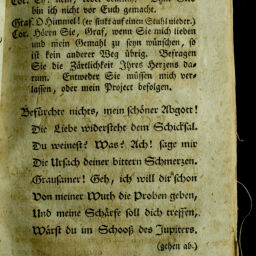 bin ich nicht vor Euch gemacht.
Graf. O Himmel! (er sinkt auf einen Stuhl nieder.)
Cor. Hören Sie, Graf, wenn Sie mich lieben
und mein Gemahl zu seyn wünschen, so
ist kein anderer Weg übrig. Befragen
Sie die Zärtlichkeit Ihres Herzens da-
rum. Entweder Sie müssen mich ver-
lassen, oder mein Project befolgen.
Befürchte nichts, mein schöner Abgott!
Die Liebe widerstehe dem Schicksal.
Du weinest? Was? Ach! sage mir
Die Ursach deiner bittern Schmerzen.
Grausamer! Geh, ich will dir schon
Von meiner Wuth die Proben geben,
Und meine Schärfe soll dich treffen,
Wärst du im Schooß des Jupiters.
(gehen ab.)